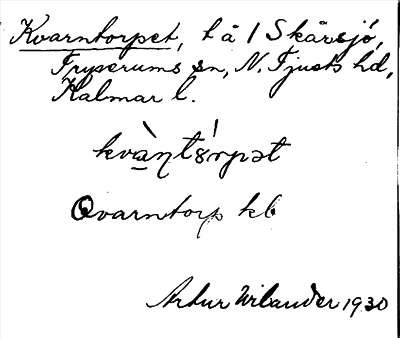 Kvarntorpet, t å 1 Skårsjö,
Tryserums sn, N. Tjusts hd,
Kalmar l.
kvàṇtórpət
Qvarntorp kb
Artur Wilander 1930